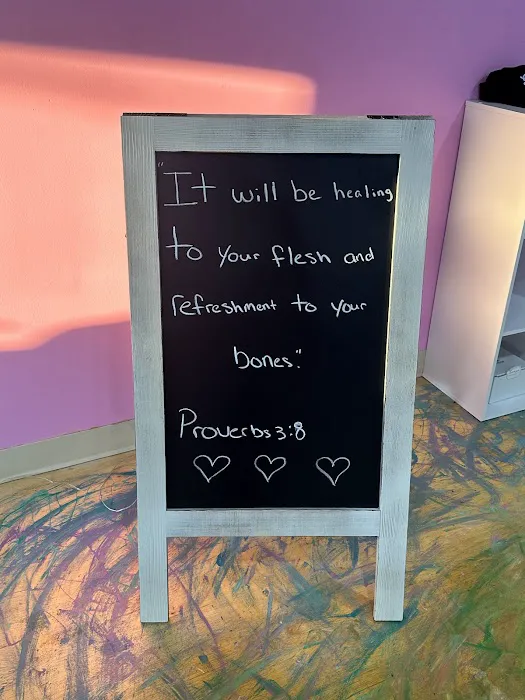 "It will be healing
to your flesh and
refreshment to your
bones."
Proverbs 3:8